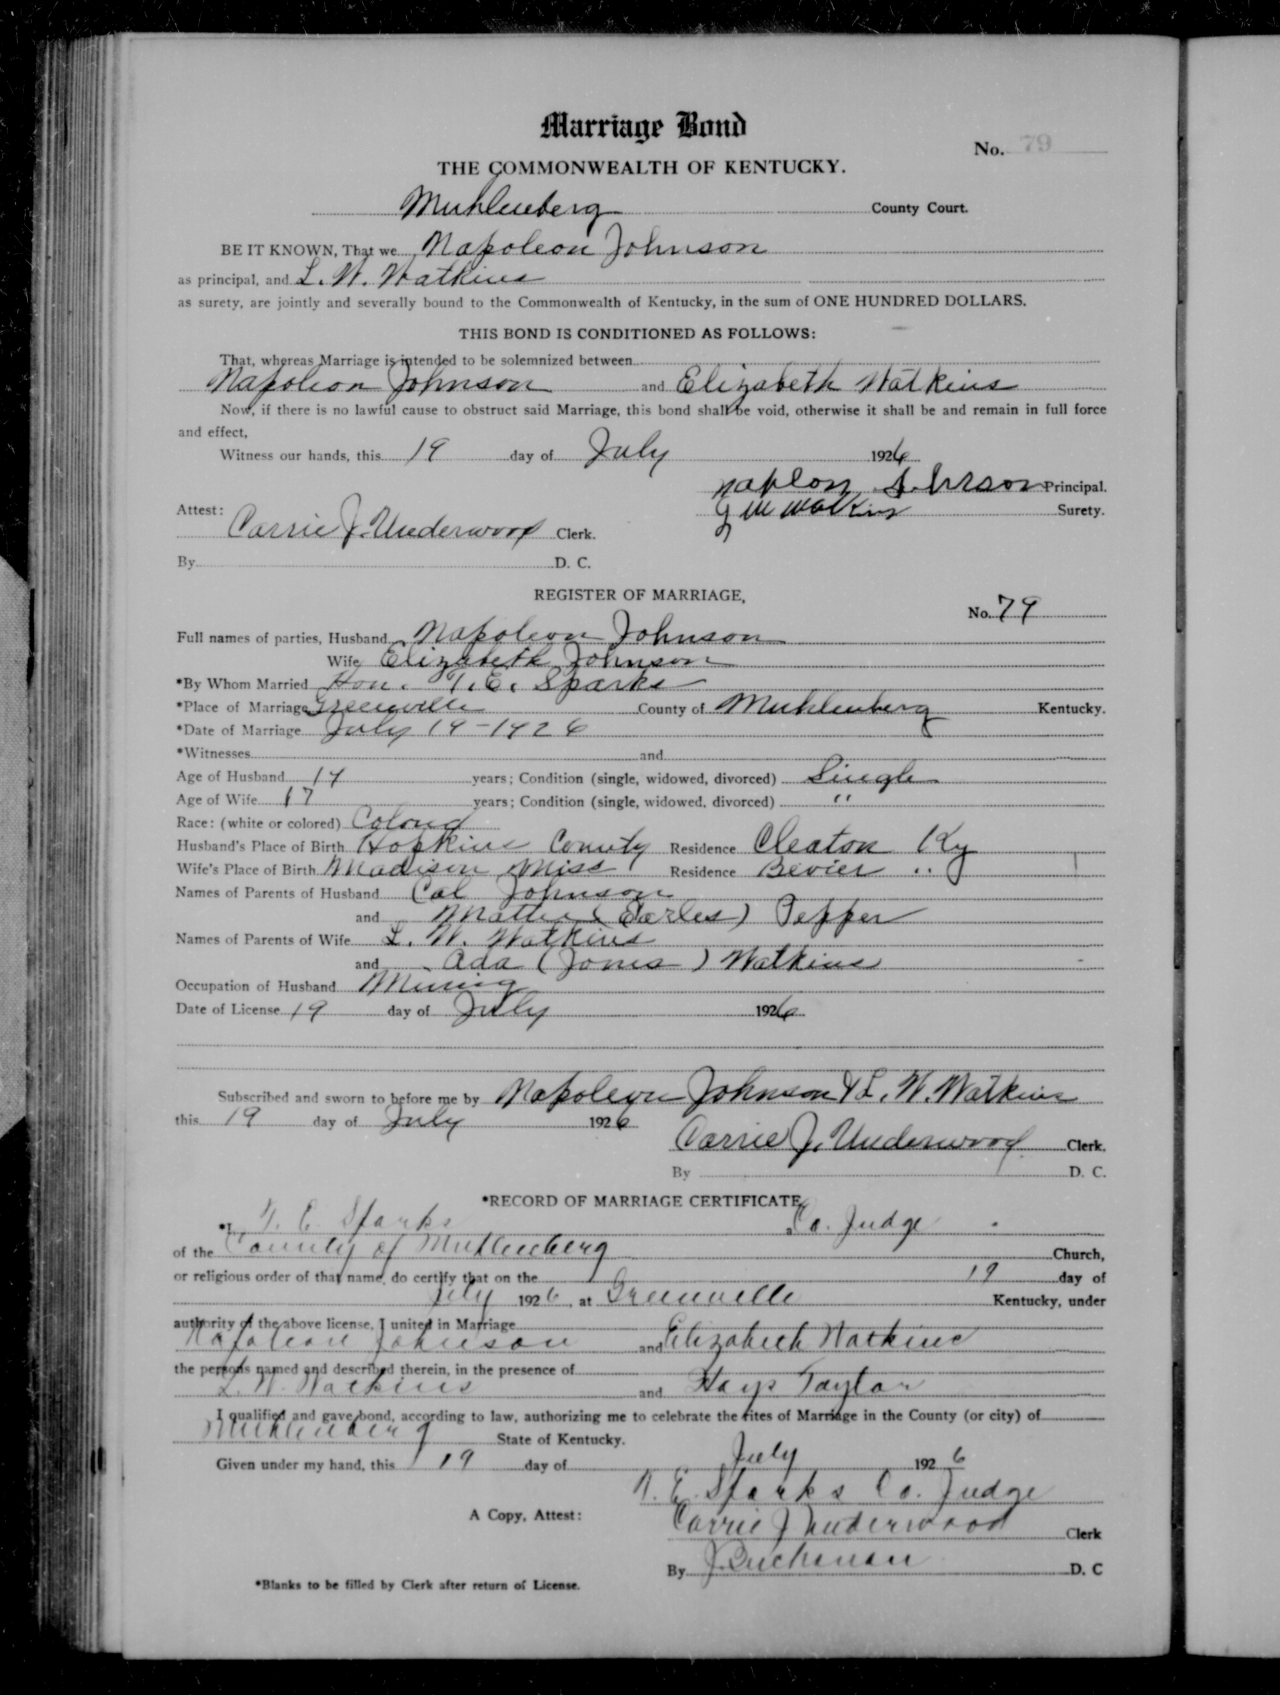 Marriage Bond
No. 79
THE COMMONWEALTH OF KENTUCKY.
Muhlenberg County Court.
BE IT KNOWN, That we Napoleon Johnson
as principal, and L. W. Watkins
as surety, are jointly and severally bound to the Commonwealth of Kentucky, in the sum of ONE HUNDRED DOLLARS.
THIS BOND IS CONDITIONED AS FOLLOWS:
That, whereas Marriage is intended to be solemnized between
Napoleon Johnson and Elizabeth Watkins
Now, if there is no lawful cause to obstruct said Marriage, this bond shall be void, otherwise it shall be and remain in full force
and effect,
Witness our hands, this 19 day of July 1926
Principal.
Attest: Watkins Surety.
Carrie J. Underwood Clerk.
By D. C.
REGISTER OF MARRIAGE,
No. 79
Full names of parties, Husband Napoleon Johnson
Wife Elizabeth Johnson
*By Whom Married Hon. T. E. Sparks
*Place of Marriage Greenville County of Muhlenberg Kentucky.
*Date of Marriage July 19-1926
*Witnesses and
Age of Husband 19 years; Condition (single, widowed, divorced) Single
Age of Wife 17 years; Condition (single, widowed, divorced) "
Race: (white or colored) Colored
Husband's Place of Birth Hopkins County Residence Cleaton Ky
Wife's Place of Birth Madison Miss Residence Bevier ..
Names of Parents of Husband Cal Johnson
and Mattie (Earles) Pepper
Names of Parents of Wife L. W. Watkins
and Ada (Jones) Watkins
Occupation of Husband Mining
Date of License 19 day of July 1926
Subscribed and sworn to before me by Napoleon Johnson & L. W. Watkins
this 19 day of July 1926
Carrie J. Underwood Clerk.
By D. C.
*RECORD OF MARRIAGE CERTIFICATE
*I, T. E. Sparks Co. Judge
of the County of Muhlenberg Church,
or religious order of that name, do certify that on the 19 day of
July 1926, at Greenville Kentucky, under
authority of the above license, I united in Marriage
Napoleon Johnson and Elizabeth Watkins
the persons named and described therein, in the presence of
L. W. Watkins and Hays Taylor
I qualified and gave bond, according to law, authorizing me to celebrate the rites of Marriage in the County (or city) of
Muhlenberg State of Kentucky.
Given under my hand, this 19 day of July 1926
T. E. Sparks Co. Judge
A Copy, Attest: Carrie J Underwood Clerk
By J. Buchanan D. C
*Blanks to be filled by Clerk after return of License.